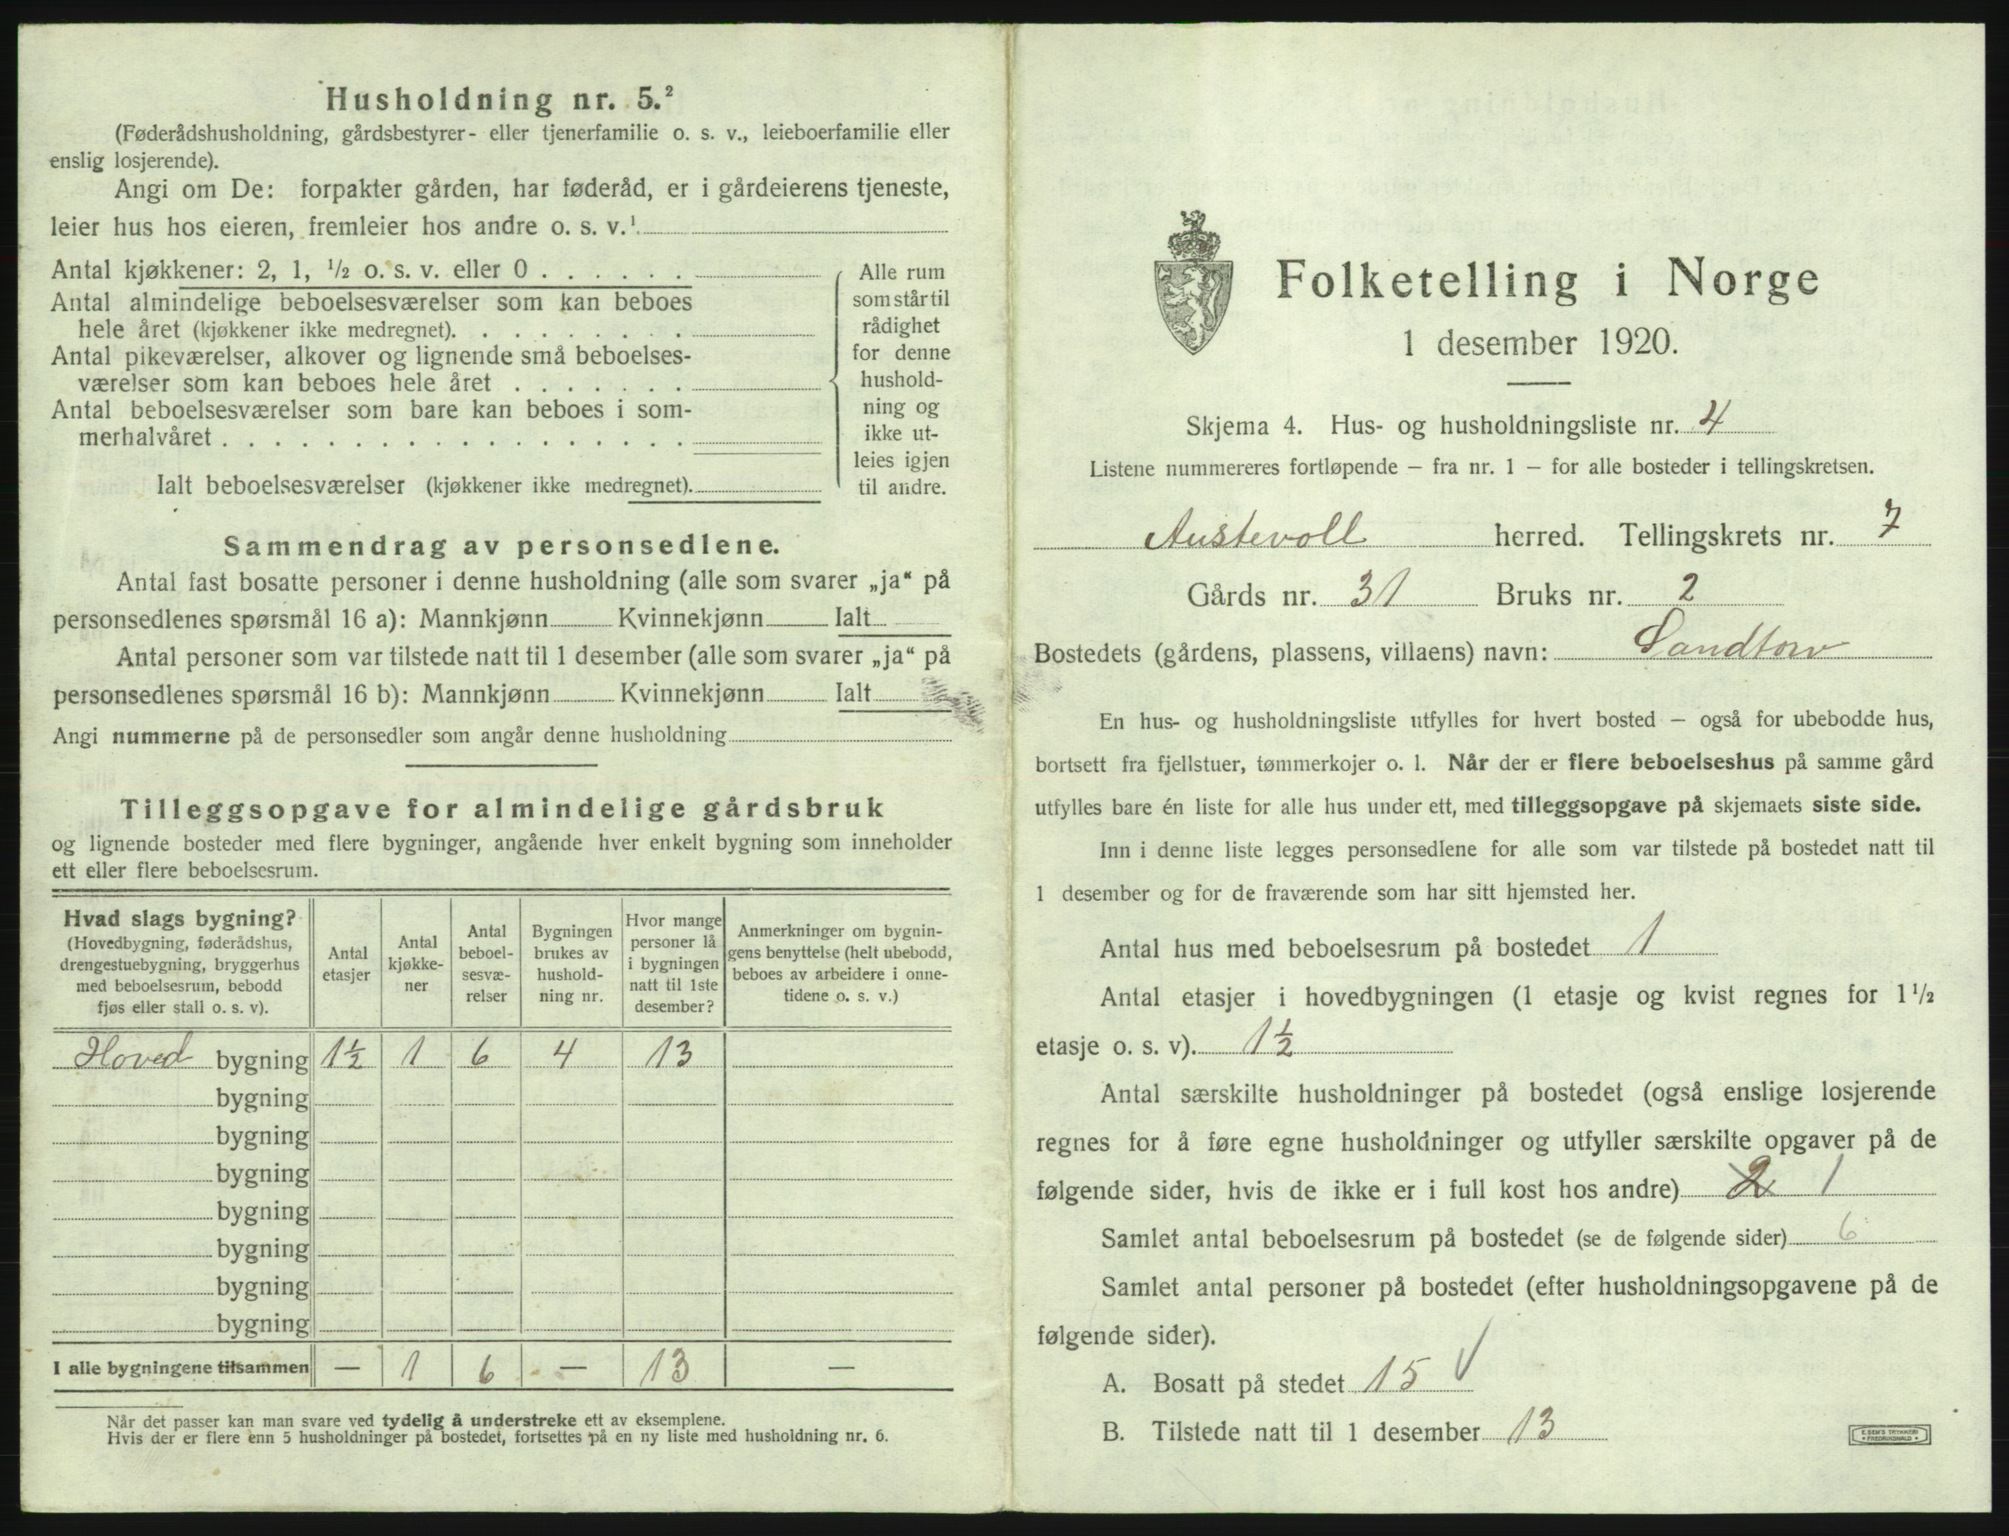 Husholdning nr. 5.²
(Føderådshusholdning, gårdsbestyrer- eller tjenerfamilie o. s. v., leieboerfamilie eller
enslig losjerende).
Angi om De: forpakter gården, har føderåd, er i gårdeierens tjeneste,
leier hus hos eieren, fremleier hos andre o. s. v.¹
Antal kjøkkener: 2, 1, ½ o. s. v. eller 0
Antal almindelige beboelsesværelser som kan beboes
hele året (kjøkkener ikke medregnet).
Antal pikeværelser, alkover og lignende små beboelses-
værelser som kan beboes hele året
Antal beboelsesværelser som bare kan beboes i som-
merhalvåret
Ialt beboelsesværelser (kjøkkener ikke medregnet).
Alle rum
som står til
rådighet
for denne
hushold-
ning og
ikke ut-
leies igjen
til andre.
Sammendrag av personsedlene.
Antal fast bosatte personer i denne husholdning (alle som svarer „ja“ på
personsedlenes spørsmål 16 a): Mannkjønn Kvinnekjønn Ialt
Antal personer som var tilstede natt til 1 desember (alle som svarer „ja“ på
personsedlenes spørsmål 16 b): Mannkjønn Kvinnekjønn Ialt
Angi nummerne på de personsedler som angår denne husholdning
Tilleggsopgave for almindelige gårdsbruk
og lignende bosteder med flere bygninger, angående hver enkelt bygning som inneholder
ett eller flere beboelsesrum.
Hvad slags bygning?
(Hovedbygning, føderådshus,
drengestuebygning, bryggerhus
med beboelsesrum, bebodd
fjøs eller stall o. s. v).
Antal
etasjer
Antal
kjøkke-
ner
Antal
beboel-
sesvæ-
relser
Bygningen
brukes av
hushold-
ning nr.
Hvor mange
personer lå
i bygningen
natt til 1ste
desember?
Anmerkninger om bygnin-
gens benyttelse (helt ubebodd,
beboes av arbeidere i onne-
tidene o. s. v.)
Hoved bygning 1½ 1 6 4 13
bygning
bygning
bygning
bygning
bygning
bygning
bygning
I alle bygningene tilsammen — 1 6 — 13 —
Når det passer kan man svare ved tydelig å understreke ett av eksemplene.
Hvis der er flere enn 5 husholdninger på bostedet, fortsettes på en ny liste med husholdning nr. 6.
Folketelling i Norge
1 desember 1920.
Skjema 4. Hus- og husholdningsliste nr. 4
Listene nummereres fortløpende – fra nr. 1 – for alle bosteder i tellingskretsen.
Austevoll herred. Tellingskrets nr. 7
Gårds nr. 31 Bruks nr. 2
Bostedets (gårdens, plassens, villaens) navn: Sandtorv
En hus- og husholdningsliste utfylles for hvert bosted – også for ubebodde hus,
bortsett fra fjellstuer, tømmerkojer o. l. Når der er flere beboelseshus på samme gård
utfylles bare én liste for alle hus under ett, med tilleggsopgave på skjemaets siste side.
Inn i denne liste legges personsedlene for alle som var tilstede på bostedet natt til
1 desember og for de fraværende som har sitt hjemsted her.
Antal hus med beboelsesrum på bostedet 1
Antal etasjer i hovedbygningen (1 etasje og kvist regnes for 1½
etasje o. s. v). 1½
Antal særskilte husholdninger på bostedet (også enslige losjerende
regnes for å føre egne husholdninger og utfyller særskilte opgaver på de
følgende sider, hvis de ikke er i full kost hos andre) 2 1
Samlet antal beboelsesrum på bostedet (se de følgende sider) 6
Samlet antal personer på bostedet (efter husholdningsopgavene på de
følgende sider).
A. Bosatt på stedet 15 √
B. Tilstede natt til 1 desember 13
E. SEM'S TRYKKERI
FREDRIKSHALD